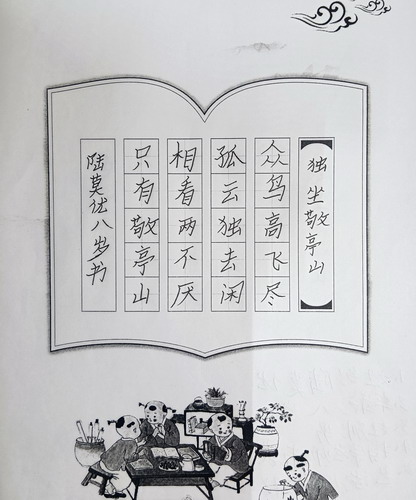 独坐敬亭山
众鸟高飞尽
孤云独去闲
相看两不厌
只有敬亭山
陆莫优八岁书